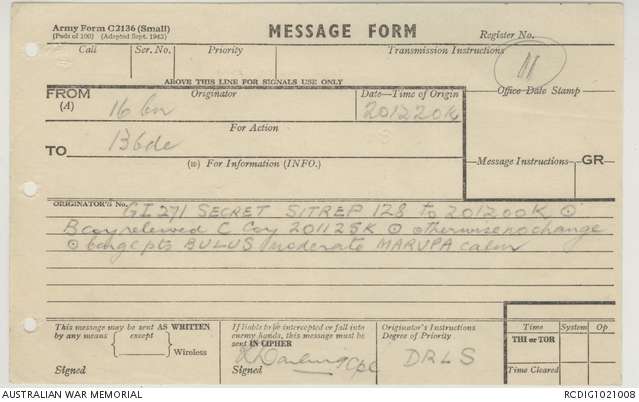 Army Form C2136 (Small)
(Pads of 100) (Adopted Sept. 1943)
MESSAGE FORM
Register No.
Call
Ser. No.
Priority
Transmission Instructions
11
ABOVE THIS LINE FOR SIGNALS USE ONLY
FROM
(A)
Originator
16 bn
Date—Time of Origin
201220K
Office Date Stamp
For Action
TO
Bde
(W) For Information (INFO.)
Message Instructions
GR
ORIGINATOR'S No.
GI 271 SECRET SITREP 128 to 201200K ⊙
B coy relieved C Coy 201125K ⊙ otherwise no change
⊙ bargepts BULUS moderate MARUPA calm
This message may be sent AS WRITTEN
by any means except
Wireless
Signed
If liable to be intercepted or fall into
enemy hands, this message must be
sent IN CIPHER
Signed
Cpl
Originator's Instructions
Degree of Priority
DRLS
Time
System
Op
THI or TOR
Time Cleared
AUSTRALIAN WAR MEMORIAL
RCDIG1021008